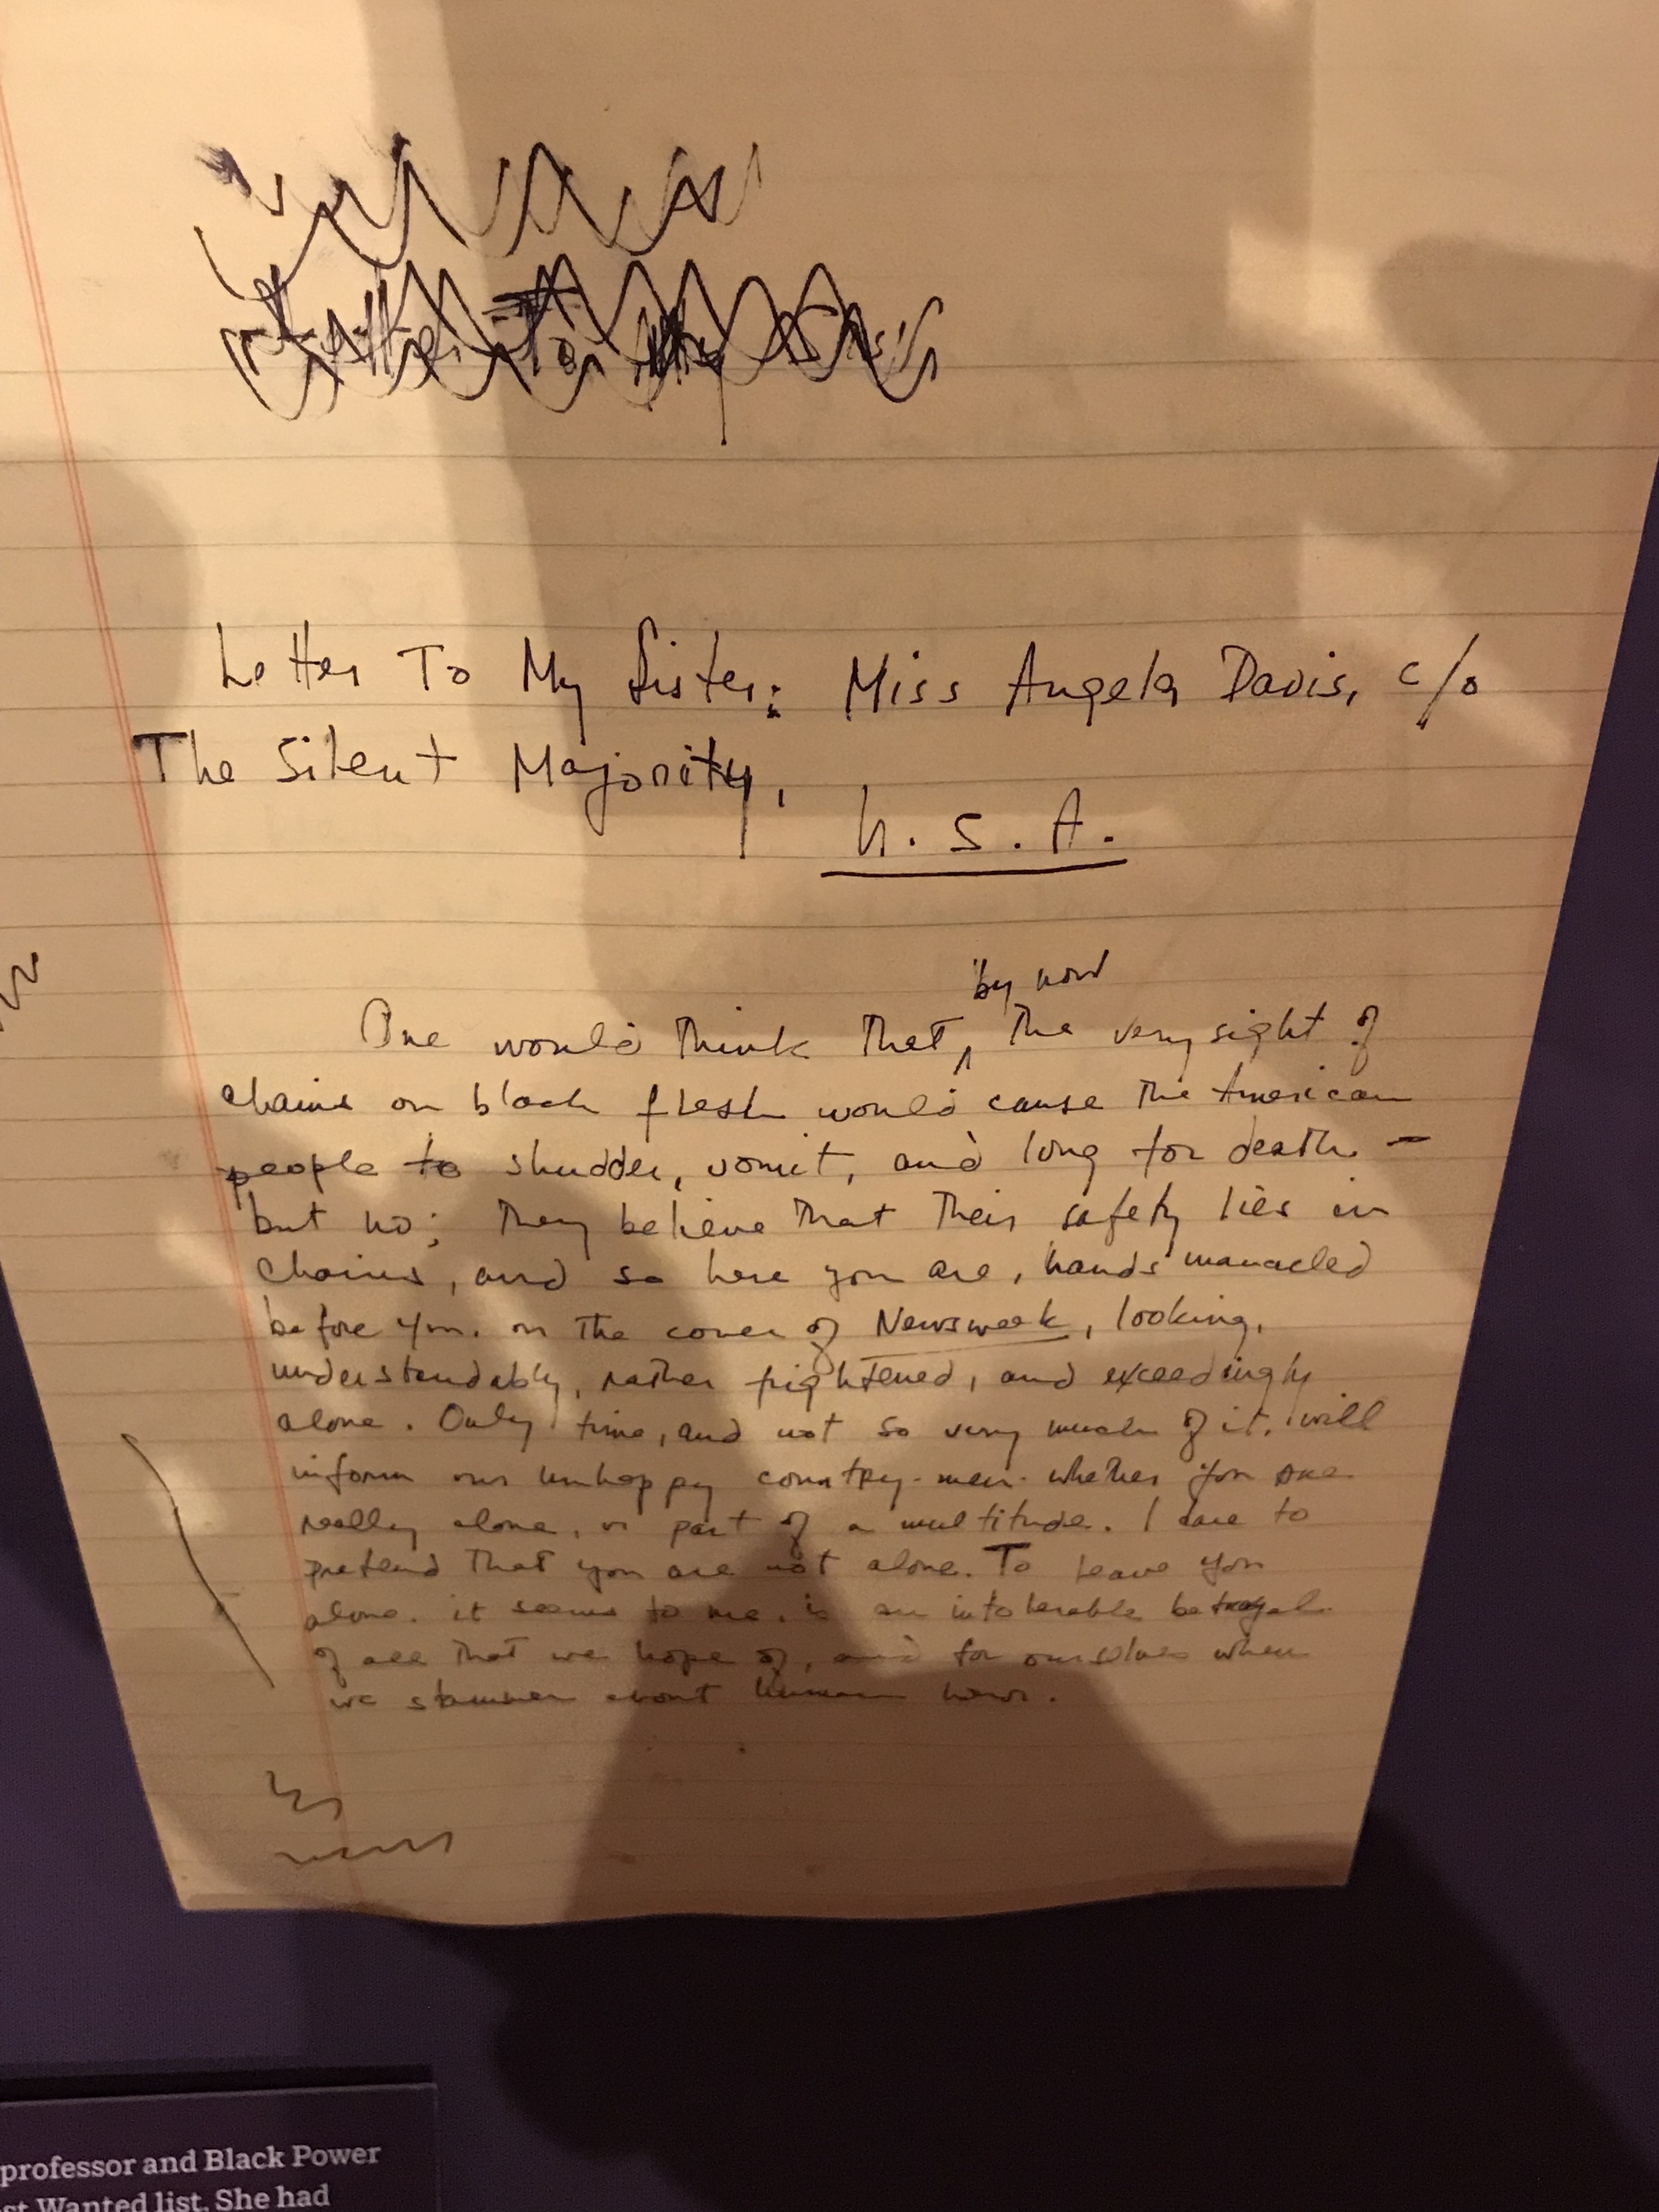 Letter To My Sister: Miss Angela Davis, c/o
The Silent Majority,
U.S.A.
by now
One would think that, the very sight of
chains on black flesh would cause the American
people to shudder, vomit, and long for death —
but no; they believe that their safety lies in
chains, and so here you are, hands manacled
before you, on the cover of Newsweek, looking,
understandably, rather frightened, and exceedingly
alone. Only time, and not so very much of it, will
inform our unhappy country-men whether you are
really alone, or part of a multitude. I dare to
pretend that you are not alone. To leave you
alone, it seems to me, is an intolerable betrayal
of all that we hope of, and for ourselves when
we stammer about human
professor and Black Power
st Wanted list. She had